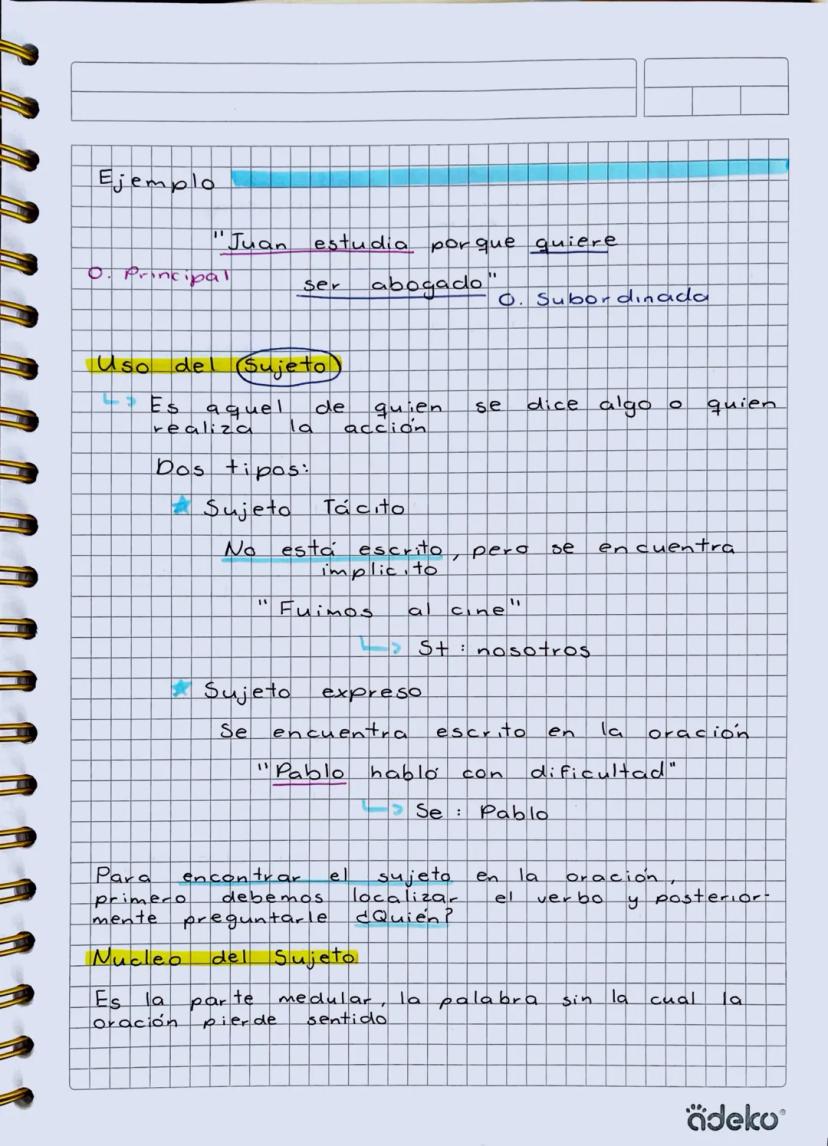 Ejemplo
"Juan estudia porque quiere
O. Principal
ser abogado"
O. Subordinada
Uso del Sujeto
Es aquel de quien se dice algo o quien
realiza la acción
Dos tipos:
Sujeto Tácito
No está escrito, pero se encuentra
implicito
"Fuimos al cine"
St : nosotros
Sujeto expreso
Se encuentra escrito en la oración
"Pablo habló con dificultad"
Se : Pablo
Para encontrar el sujeto en la oración,
primero debemos localizar el verbo y posterior-
mente preguntarle ¿Quién?
Nucleo del Sujeto
Es la parte medular, la palabra sin la cual la
oración pierde sentido
adeko